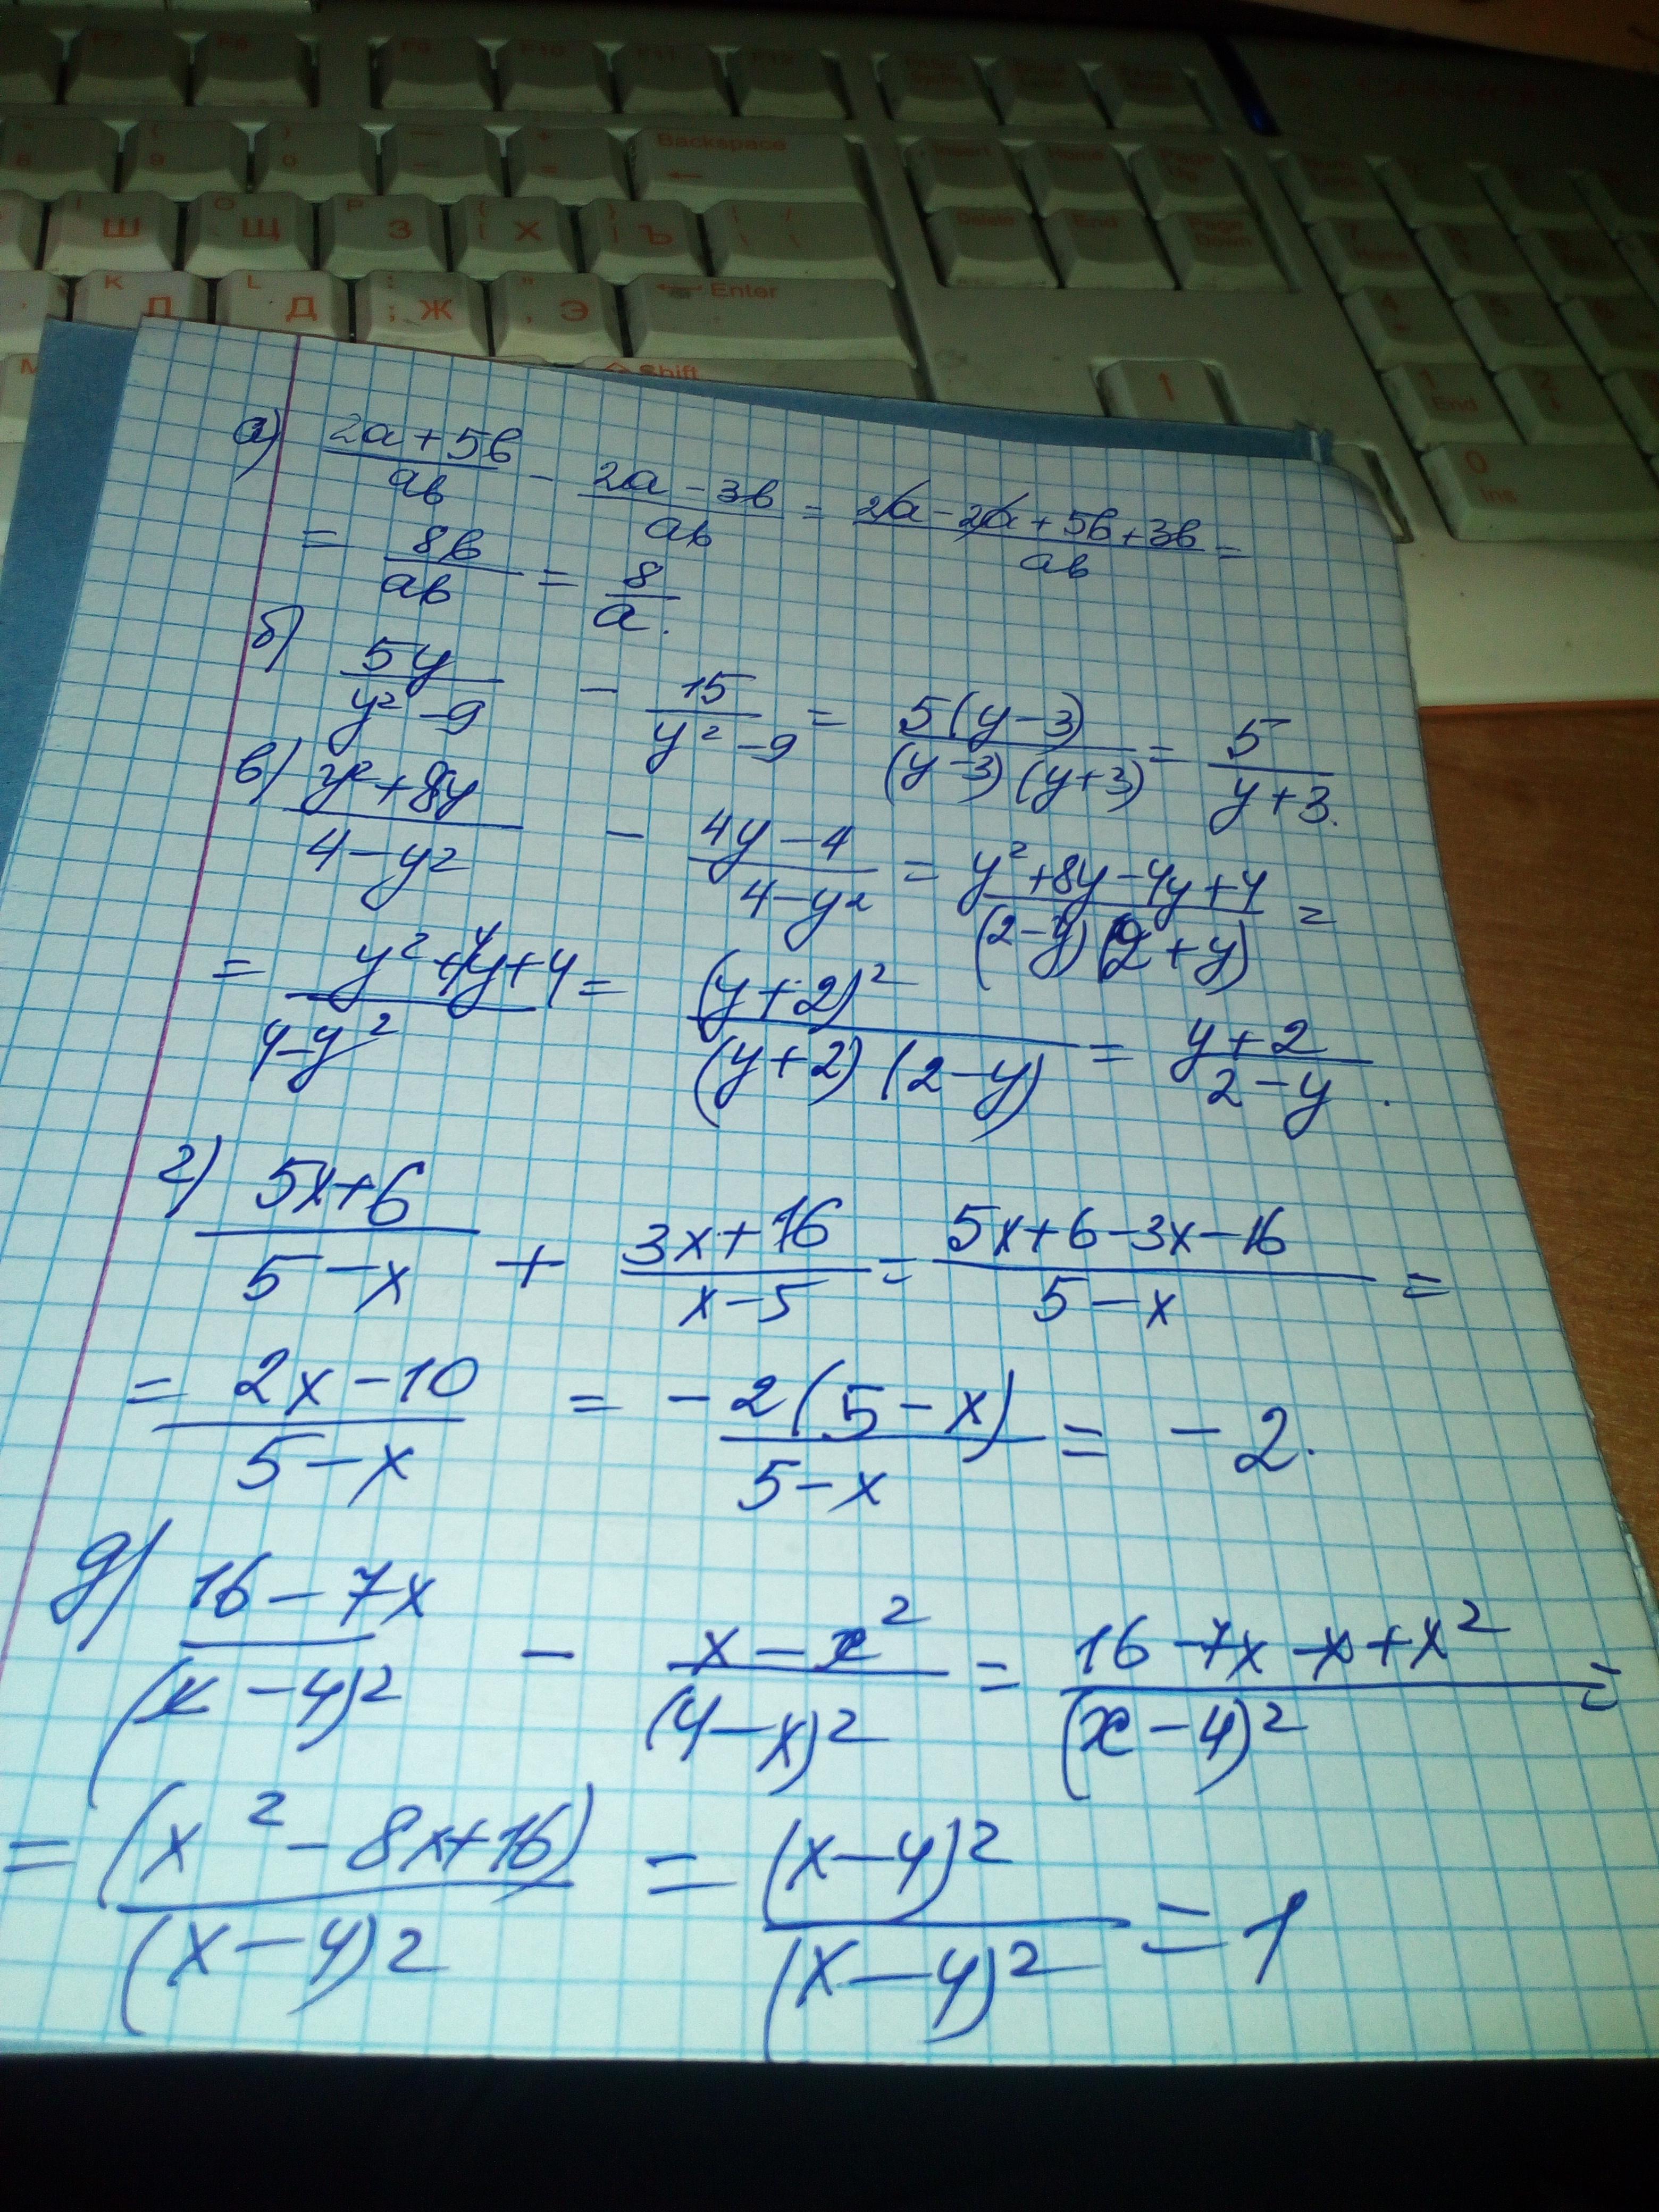 F7 F8 F9 F10 F11 F12
8 ( 9 ) 0 — + = Backspace Insert Home Page Up
I Ш O Щ P З { [ Х } ] Ъ | / \ Delete End Page Down 7 Home
K Л L Д : ; Ж " , Э Enter 4 5 6
M Shift ↑ 1 End 2 ↓
0 Ins
а) (2a+5b)/(ab) - (2a-3b)/(ab) = (2a-2a+5b+3b)/(ab) =
= (8b)/(ab) = 8/a.
б) (5y)/(y²-9) - 15/(y²-9) = (5(y-3))/((y-3)(y+3)) = 5/(y+3).
в) (y²+8y)/(4-y²) - (4y-4)/(4-y²) = (y²+8y-4y+4)/((2-y)(2+y)) =
= (y²+4y+4)/(4-y²) = (y+2)²/((y+2)(2-y)) = (y+2)/(2-y).
г) (5x+6)/(5-x) + (3x+16)/(x-5) = (5x+6-3x-16)/(5-x) =
= (2x-10)/(5-x) = (-2(5-x))/(5-x) = -2.
д) (16-7x)/(x-4)² - (x-x²)/(4-x)² = (16-7x-x+x²)/(x-4)² =
= (x²-8x+16)/(x-4)² = (x-4)²/(x-4)² = 1